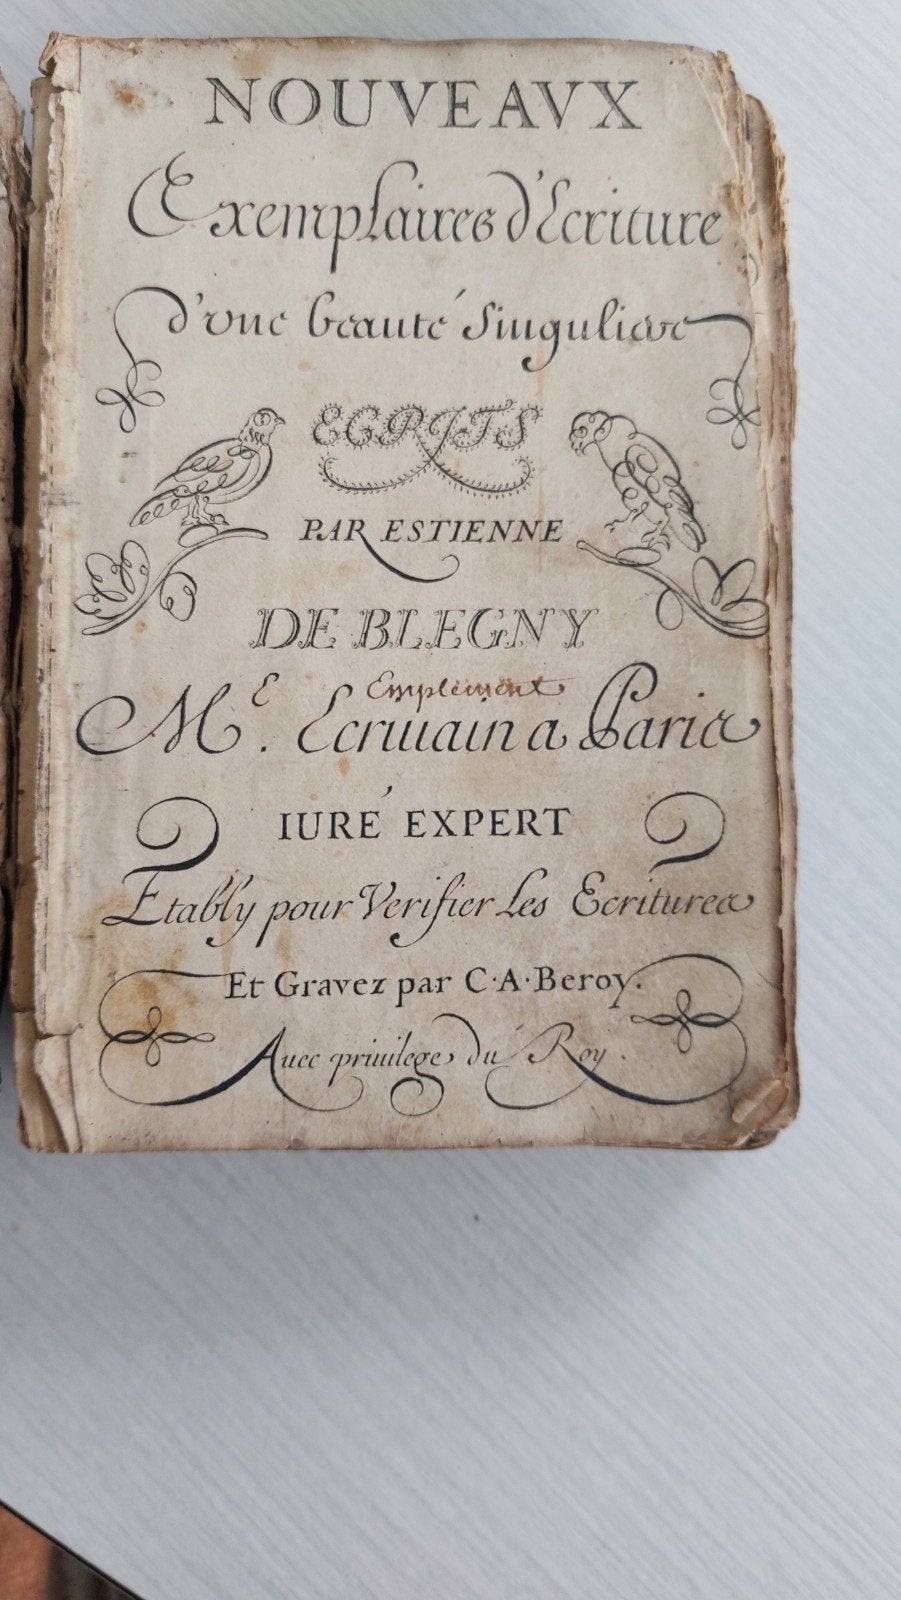 NOUVEAVX
Exemplaires d'Ecriture
d'vne beauté Singuliere
ECRITS
PAR ESTIENNE
DE BLEGNY
Emplement
M.E Ecriuain a Paris
IURÉ EXPERT
Etably pour Verifier Les Ecritures
Et Gravez par C·A·Beroy.
Auec priuilege du Roy.